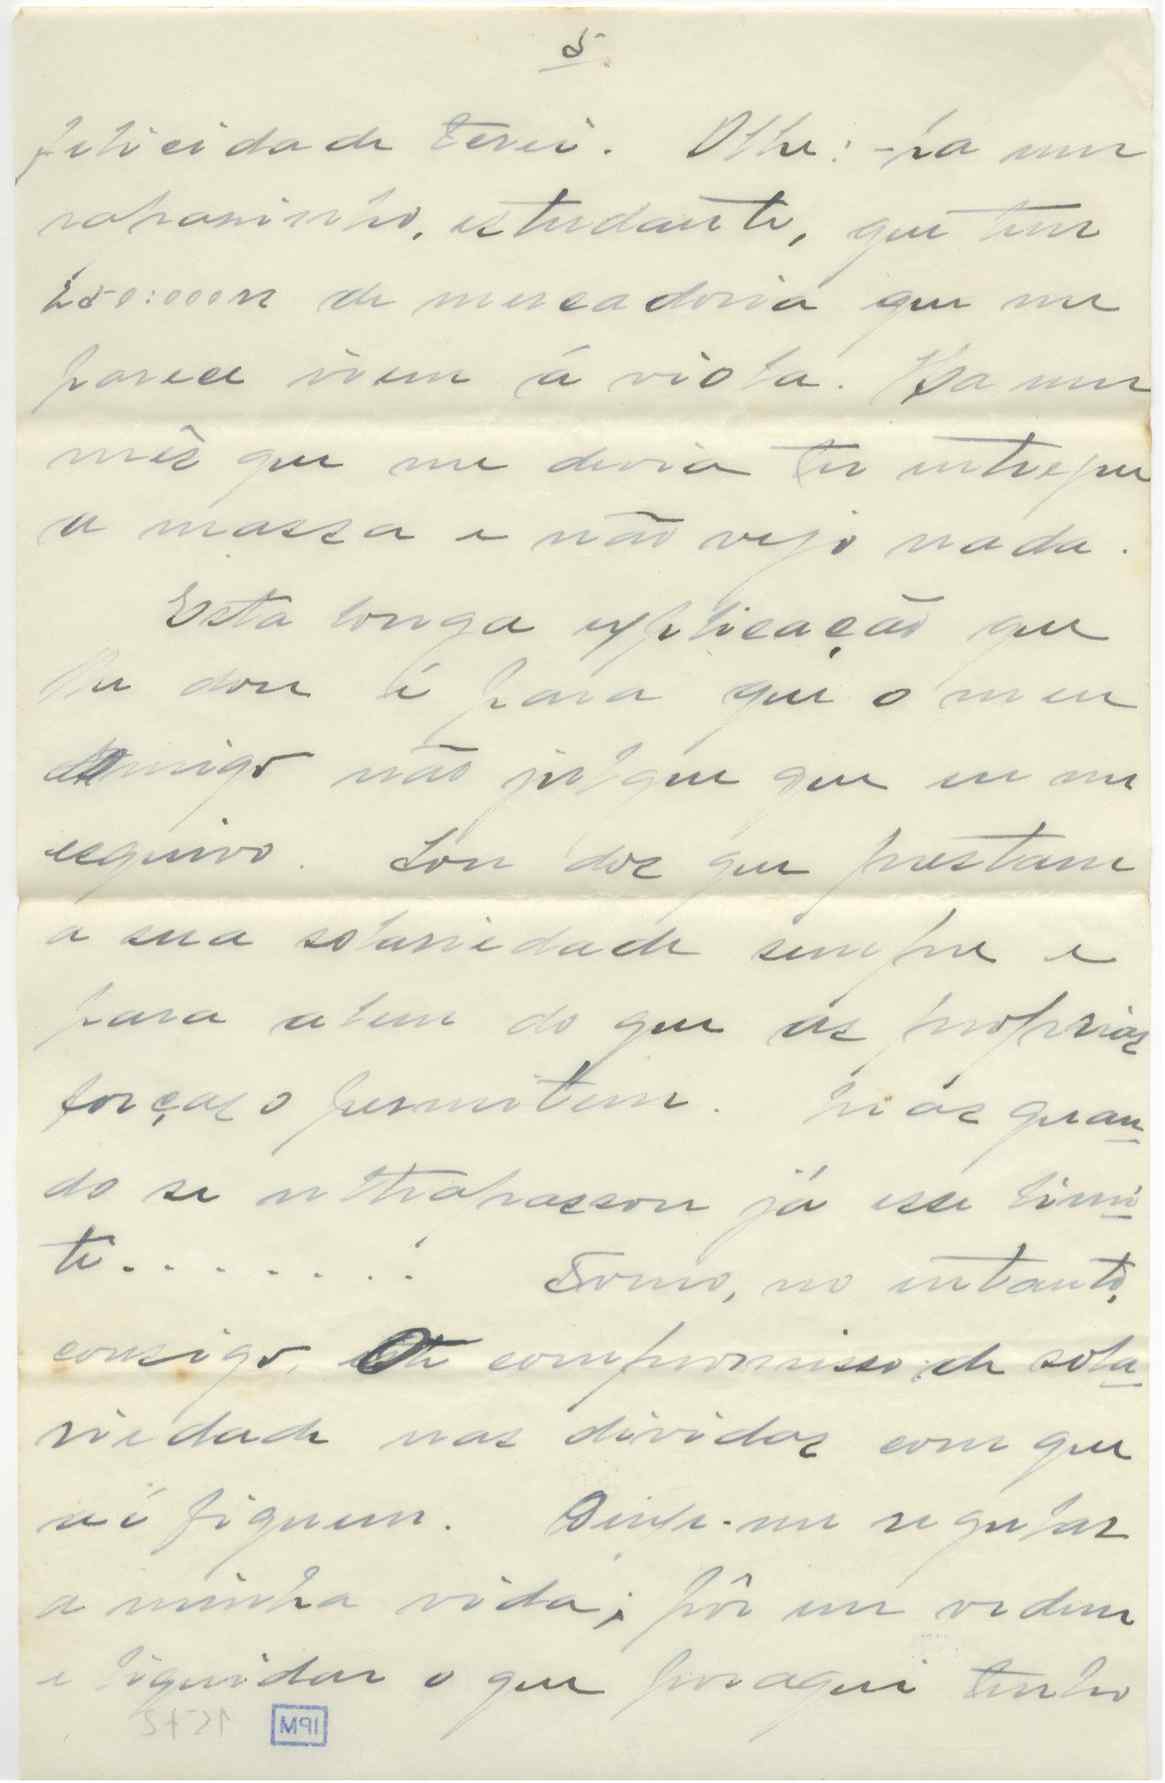 5.
felicidade terei. Olhe: - ha um
rapasinho, estudante, que tem
250:000 rs de mercadoria que me
parece irem á viola. Ha um
mês que me devia ter entregue
a massa e não vejo nada.
Esta longa explicação que
lhe dou é para que o meu
amigo não julgue que eu me
esquivo. Sou dos que prestam
a sua solariedade sempre e
para alem do que as proprias
forças o permitem. Mas quan-
do se ultrapassou já esse limi-
te........! Tomo, no entanto,
consigo, este compromisso: de sola-
riedade nas dividas com que
aí fiquem. Deixe-me regular
a minha vida; pôr em ordem
e liquidar o que poraqui tenho
IPM